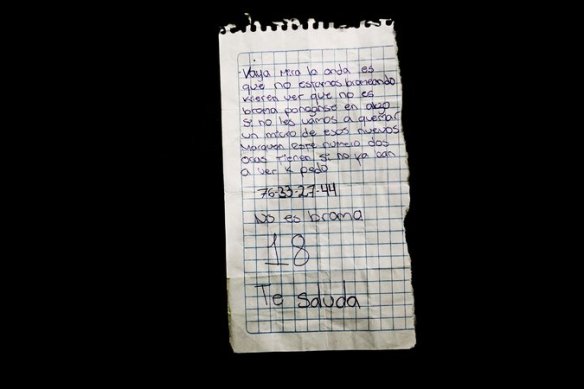 Vaya mira la onda es
que no estamos bromeando
kieren ver que no es
broma ponganse en algo
si no les vamos a quemar
un micro de esos nuevos
marquen este numero dos
oras tienen si no ya ban
a ver k pedo
76-33-27-44
No es broma
18
Te saluda